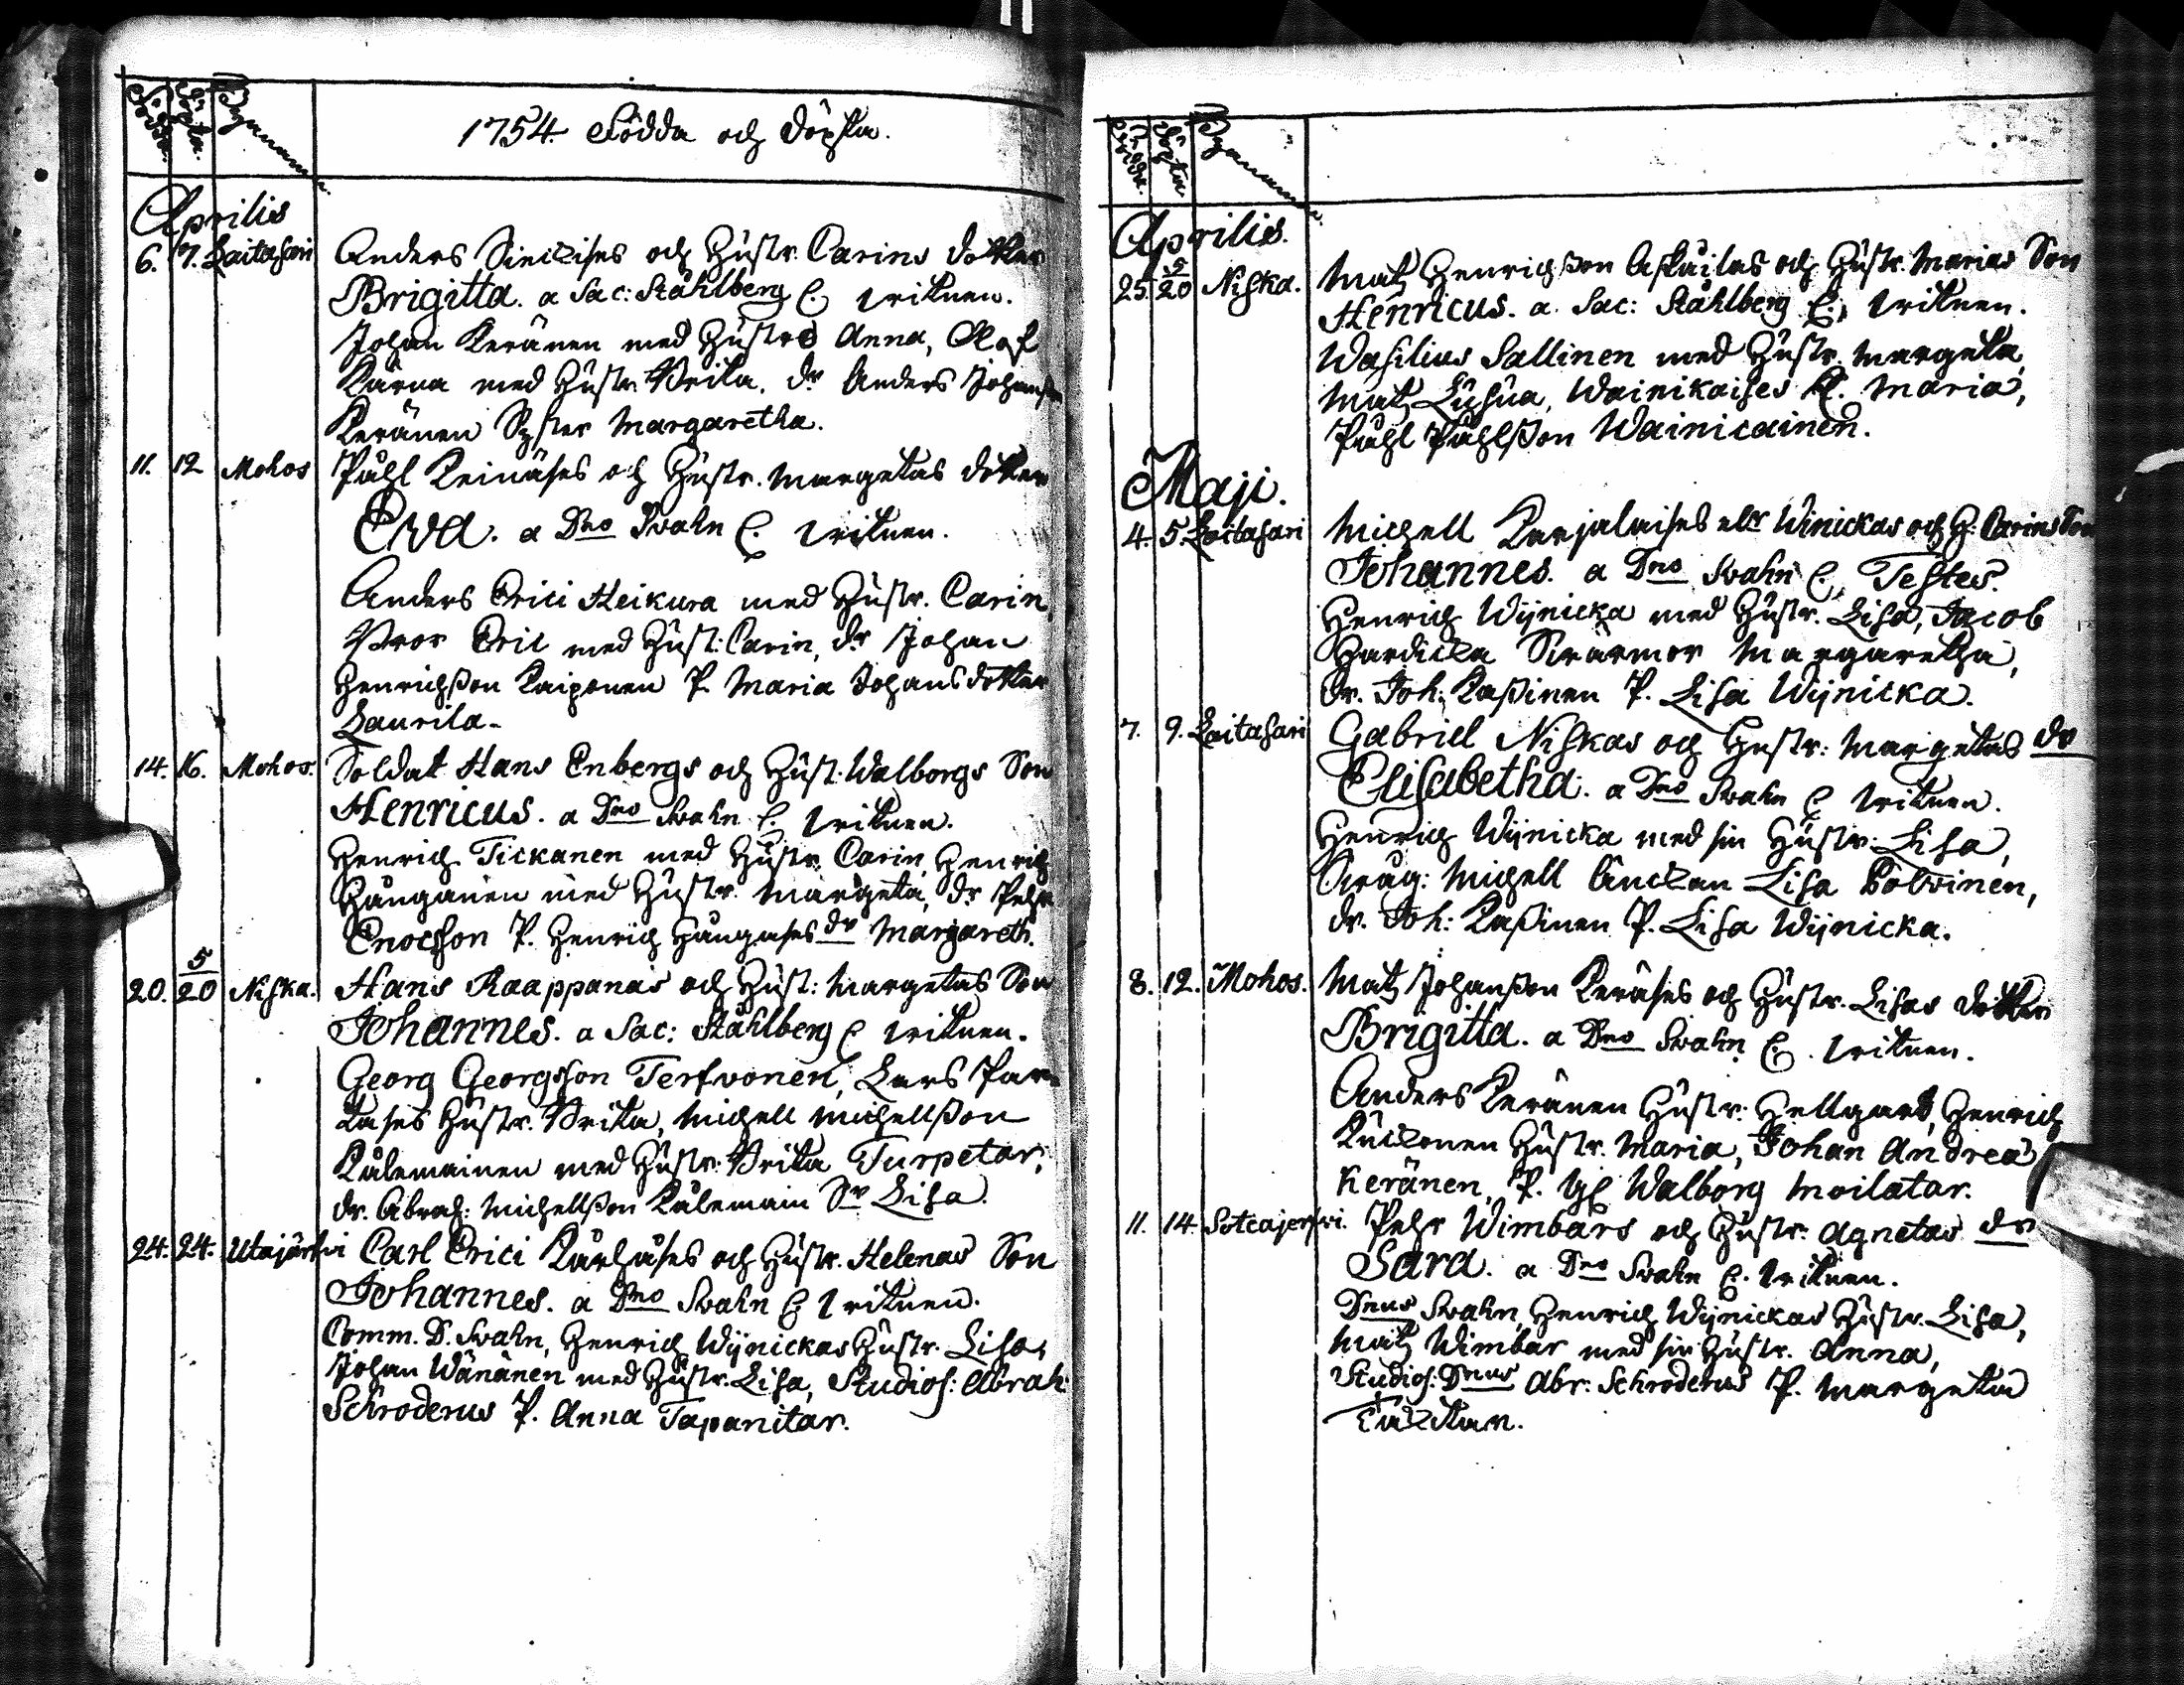 Födda. Döpta. Bynamnen.
1754. Födda och Döpta.
Aprilis
6. 7. Laitasari Anders Sinckises och Hustr. Carins dotter
Brigitta. a Sac: Ståhlberg C. vitnen.
Johan Keränen med Hustro Anna, Olof
Kärna med Hustr. Brita. dr Anders Johansson
Keränen Syster Margaretha.
11. 12 Mohos Påhl Keinäses och Hustr. Margetas dotter
Eva. a Dno Svahn C. vitnen.
Anders Erici Heikura med Hustr. Carin,
Bror Eric med Hust: Carin, dr Johan
Henrichsson Kaiponen P. Maria Johansdotter
Laurila.
14. 16. Mohos. Soldat Hans Enbergs och Hust: Walborgs Son
Henricus. a Dno Svahn C. vitnen.
Henrich Tickanen med Hustr. Carin, Henrich
Hånganen med Hustr. Margeta, dr Pehr
Enocsson P. Henrich Hångases dr Margareth.
20. 5/20 Niska. Hans Raappanas och Hust: Margetas Son
Johannes. a Sac: Ståhlberg C vitnen.
Georg Georgsson Terfvonen, Lars Par-
tases Hustr. Brita, Michell Michellsson
Kålemainen med Hustr. Brita Turpetar,
dr. Abrah: Michellsson Kålemain Sr Lisa.
24. 24. Utajärfvi Carl Erici Kärhäses och Hustr. Helenas Son
Johannes. a Dno Svahn C vitnen.
Comm. D. Svahn, Henrich Wijnickas Hustr. Lisa,
Johan Wänänen med Hustr. Lisa, Studios: Abrah:
Schroderus P. Anna Tapanitar.
Födde. Döpta Bynamnen
Aprilis.
25. 5/20 Niska. Matz Henrichsson Askailas och Hustr. Marias Son
Henricus. a. Sac: Ståhlberg C. vitnen.
Wasilius Sallinen med Hustr. Margeta,
Matz Lusua, Wainikaises H. Maria,
Påhl Påhlsson Wainicainen.
Maji.
4. 5. Laitasari Michell Karjalaises ellr Winickas och H: Carins Son
Johannes. a Dno Svahn C. Testes.
Henrich Wijnicka med Hustr. Lisa, Jacob
Hardicka Svärmor Margaretha,
Dr. Joh: Kassinen P. Lisa Wijnicka.
7. 9. Laitasari Gabriel Niskas och Hustr: Margetas dr
Elisabetha. a Dno Svahn C vitnen.
Henrich Wijnicka med sin Hustr: Lisa,
Michell Lisa Polvinen,
dr. Joh: Kassinen P. Lisa Wijnicka.
8. 12. Mohos. Matz Johansson Keräses och Hustr. Lisas dotter
Brigitta. a Dno Svahn C. vitnen.
Anders Keränen Hustr: Hellgard, Henrich
Kuckonen Hustr. Maria, Johan Andreæ
Keränen, P. Walborg Moilatar.
11. 14. Sotcajerfvi. Pehr Wimbars och Hustr. Agnetas dr
Sara. a Dno Svahn C. vitnen.
Dnus Svahn, Henrich Wijnickas Hustr. Lisa,
Matz Wimbar med sin Hustr. Anna,
Studios. Dnus Abr: Schroderus P. Margeta